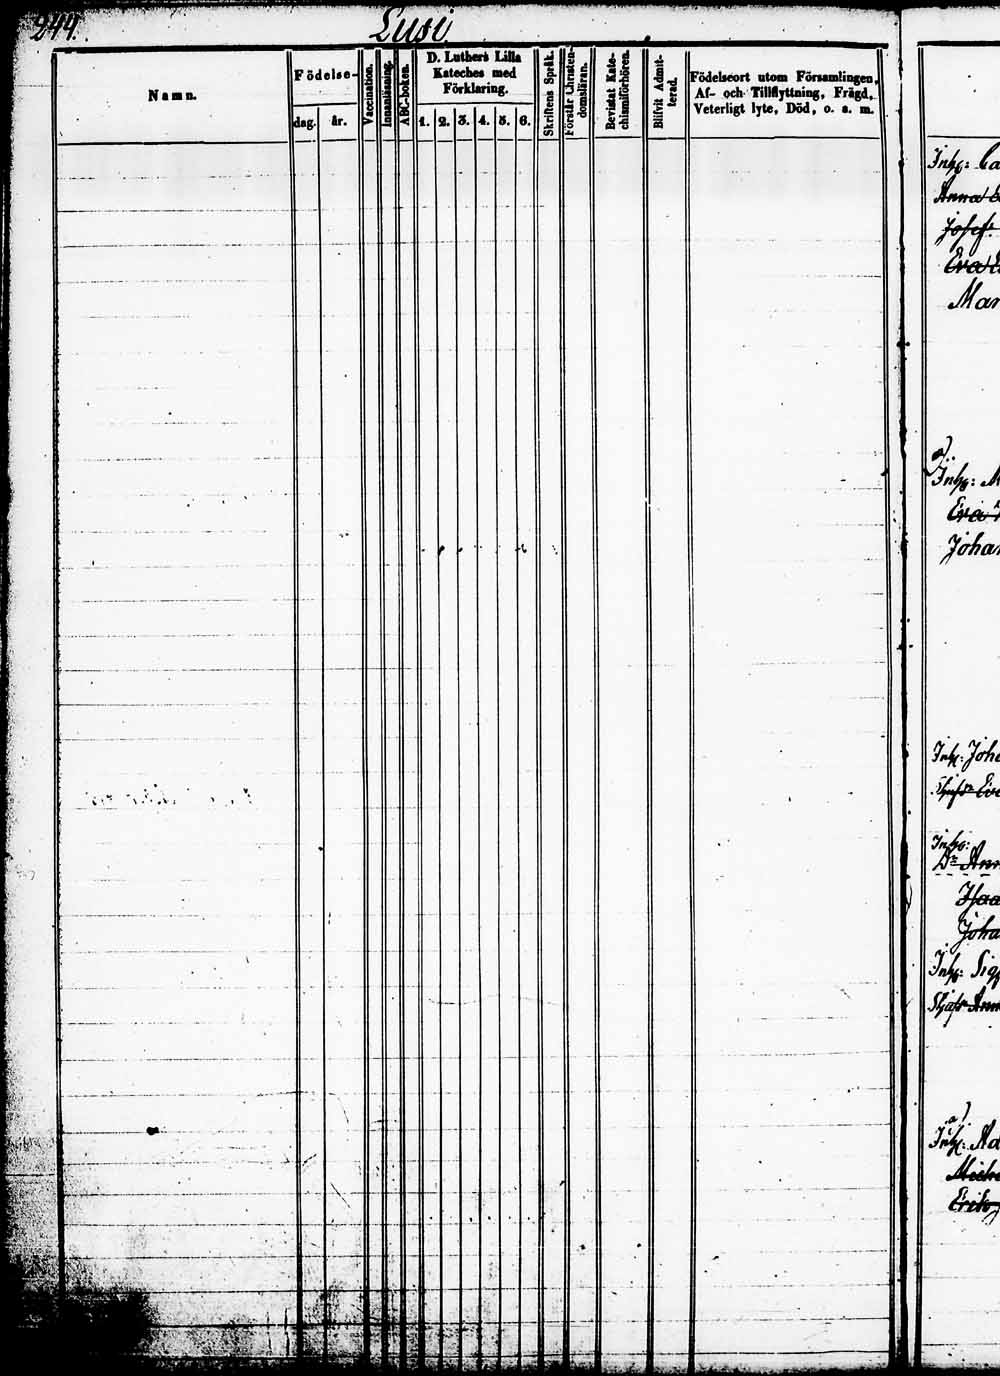 244.
Lusi
Namn.
Födelse-
dag.
år.
Vaccination.
Innanläsning.
ABC-boken.
D. Luthers Lilla
Kateches med
Förklaring.
1. 2. 3. 4. 5. 6.
Skriftens Språk.
Förstår Christen-
domsläran.
Bevistat Kate-
chismiförhören.
Blifvit Admit-
terad.
Födelseort utom Församlingen,
Af- och Tillflyttning, Frägd,
Veterligt lyte, Död, o. s. m.
Inh:
Anna
Josef
Eva
Mar
a)
Inh: M
Eva
Johan
Inh: Joha
Eva
Inh:
Ann
Isaa
Joha
Inh: Sig
Ann
a)
Inh: Ad
Mich
Erik